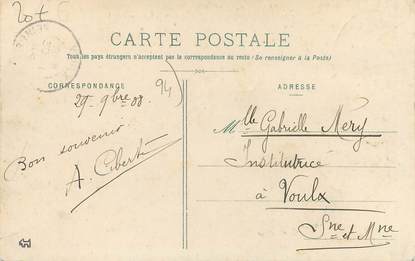 20+
CARTE POSTALE
Tous les pays étrangers n'acceptent pas la correspondance au recto (Se renseigner à la Poste)
CORRESPONDANCE
ADRESSE
94
29 - 9bre 08.
Bon souvenir
A.
Mlle Gabrielle Mery
Institutrice
à Voulx
Sne et Mne